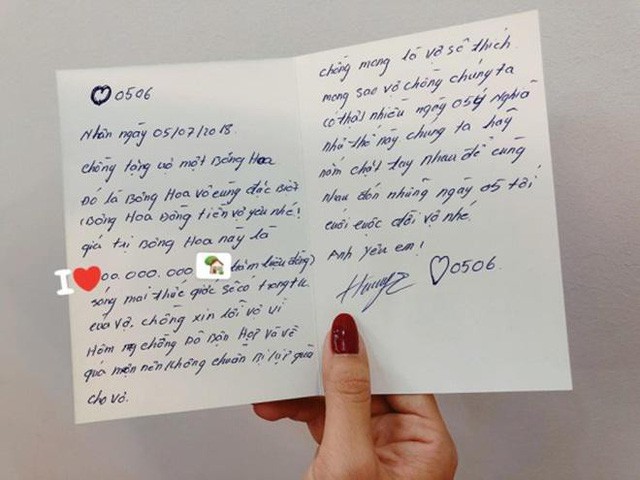 ♡0506
Nhân ngày 05/07/2018.
Chồng tặng vợ một Bông Hoa
Đó là Bông Hoa vô cùng đặc Biệt
(Bông Hoa Đồng tiền vợ yêu nhé!
giá trị Bông Hoa này là
I ❤ 00.000.000 trăm triệu đồng)
sáng mai thức giấc sẽ có trong tk
của vợ. chồng xin lỗi vợ vì
Hôm nay chồng Đã Bận Họp và về
quá muộn nên không chuẩn Bị kịp quà
cho vợ.
chồng mong là vợ sẽ thích
mong sao vợ chồng chúng ta
có thật nhiều ngày 05 ý Nghĩa
như thế này chúng ta hãy
nắm chặt tay nhau để cùng
nhau đón những ngày 05 tới
cuối cuộc đời vợ nhé.
Anh yêu em!
♡0506.